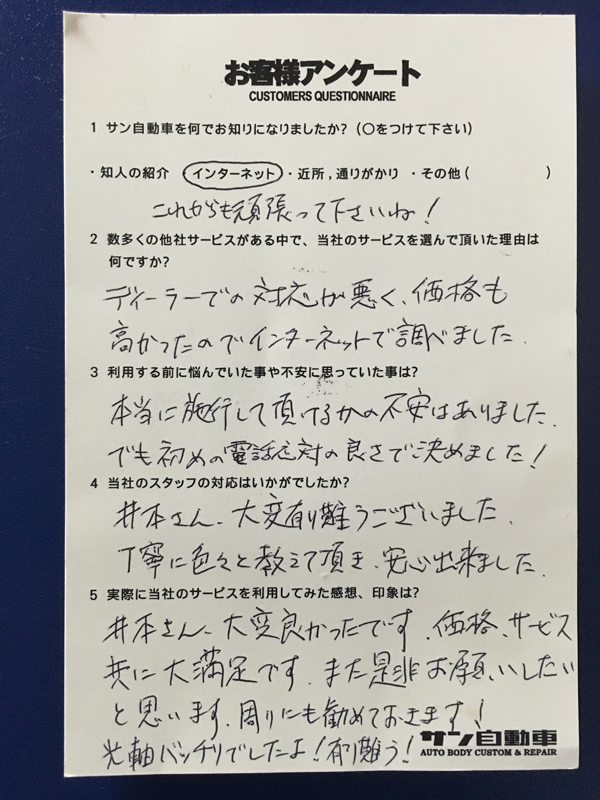 お客様アンケート
CUSTOMERS QUESTIONNAIRE
1 サン自動車を何でお知りになりましたか?(〇をつけて下さい)
・知人の紹介 インターネット ・近所,通りがかり ・その他( )
これからも頑張って下さいね!
2 数多くの他社サービスがある中で、当社のサービスを選んで頂いた理由は
何ですか?
ディーラーでの対応が悪く、価格も
高かったのでインターネットで調べました.
3 利用する前に悩んでいた事や不安に思っていた事は?
本当に施行して頂けるかの不安はありました.
でも初めの電話応対の良さで決めました!
4 当社のスタッフの対応はいかがでしたか?
井本さん、大変有り難うございました.
丁寧に色々と教えて頂き、安心出来ました.
5 実際に当社のサービスを利用してみた感想、印象は?
井本さん、大変良かったです.価格、サービス
共に大満足です.また是非お願いしたい
と思います.周りにも勧めておきます!
光軸バッチリでしたよ!有り難う!
サン自動車
AUTO BODY CUSTOM & REPAIR